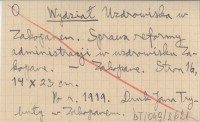 Wydział Uzdrowiska w
Zakopanem. Sprawa reformy
administracji w uzdrowisku Za-
kopane. — Zakopane. Stron 16,
14 × 23 cm.
r. 1919. Druk Jana Try-
buły w Zakopanem.